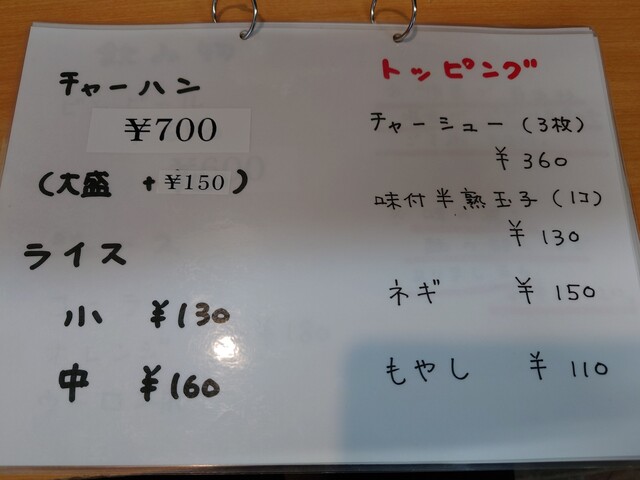 チャーハン
¥700
(大盛 +¥150)
ライス
小 ¥130
中 ¥160
トッピング
チャーシュー(3枚)
¥360
味付半熟玉子(1コ)
¥130
ネギ ¥150
もやし ¥110